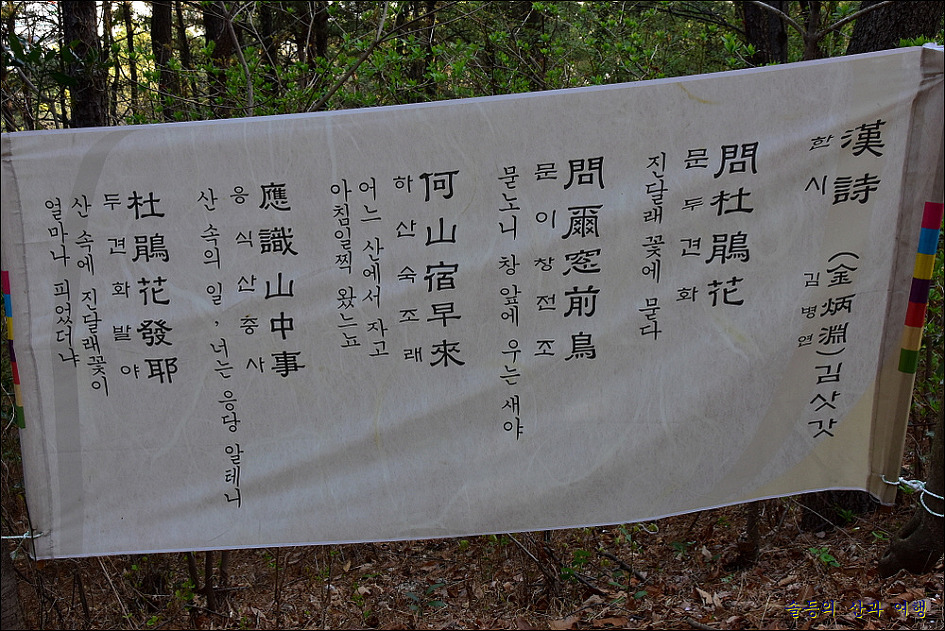 漢詩
한시
(金炳淵)김삿갓
김병연
問杜鵑花
문두견화
진달래꽃에 묻다
問爾窓前鳥
문이창전조
묻노니 창 앞에 우는 새야
何山宿早來
하산숙조래
어느 산에서 자고
아침일찍 왔느뇨
應識山中事
응식산중사
산 속의 일, 너는 응당 알테니
杜鵑花發耶
두견화발야
산 속에 진달래꽃이
얼마나 피었더냐
술둥의 산과 여행